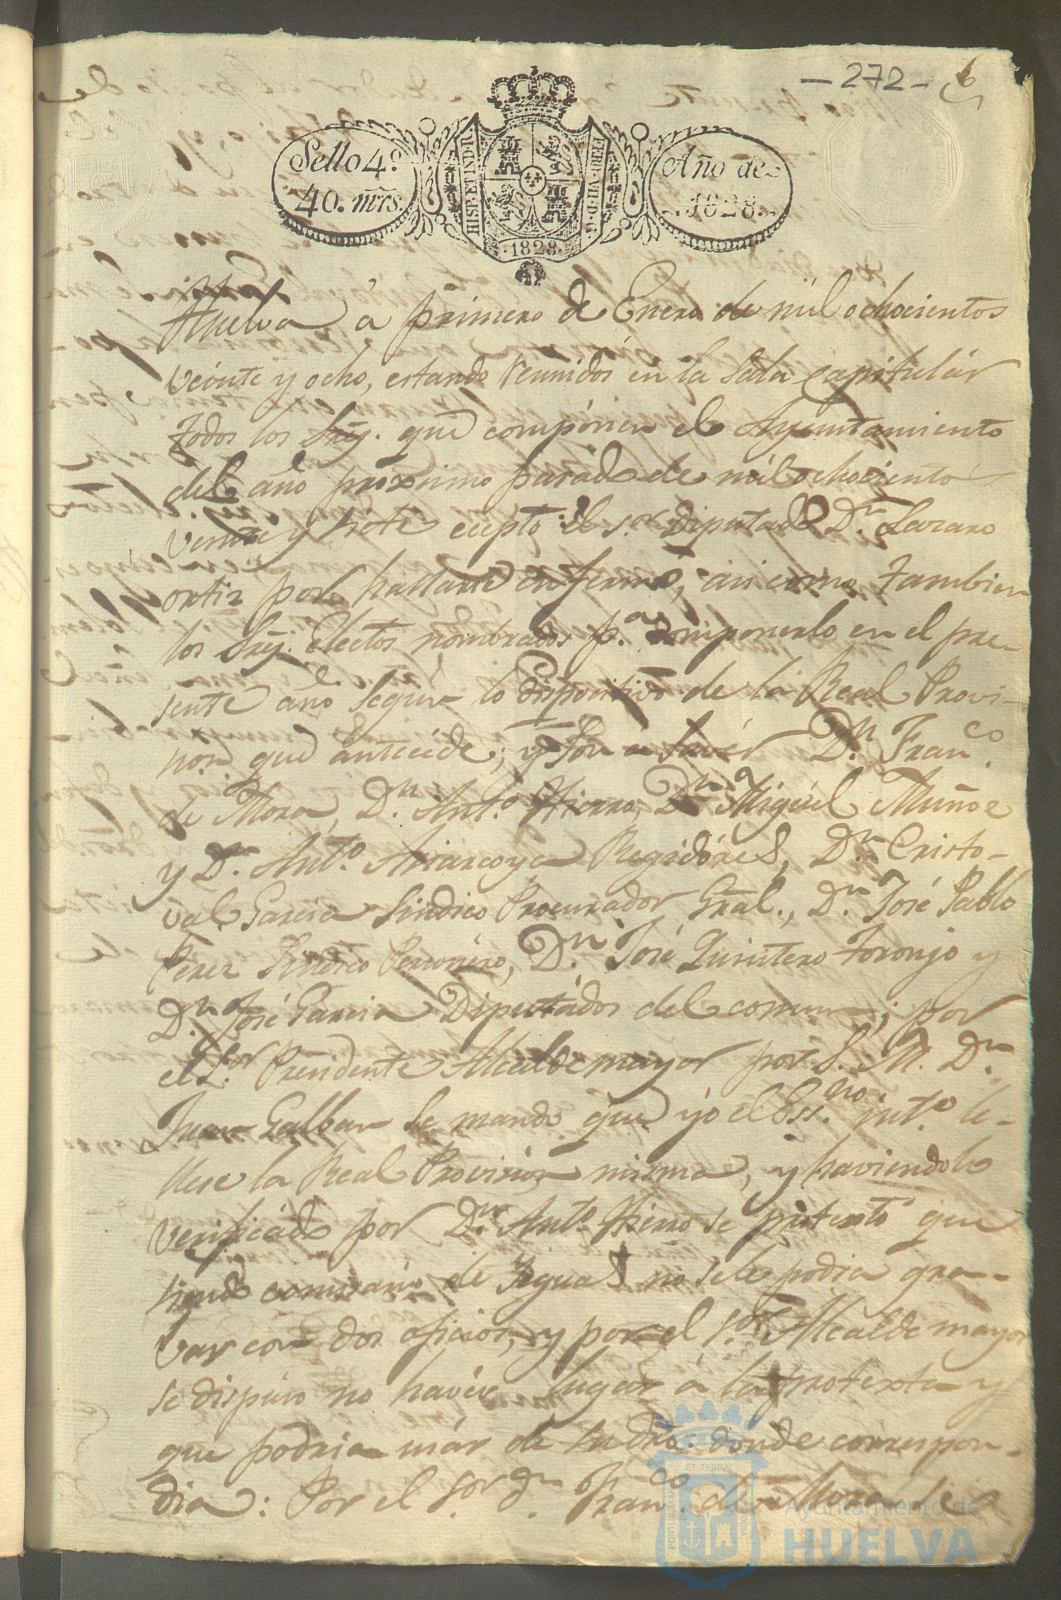 -272- 6
Sello 4º
40. mrs.
HISP. ET IND. R.
FERD. VII. D. G.
1828.
Año de
1828.
Huelva á primero de Enero de mil ochocientos
veinte y ocho, estando reunidos en la Sala capitulár
todos los Srs̃. que compónen el Ayuntamiento
del año próximo pasado de mil ochociento
veinte y siete ecepto el s.or diputado D.n Lazaro
ortiz por hallarse enfermo, asi como tambien
los Srs̃. Electos nombrados p.a componerlo en el pre-
sente año segun lo dispositivo de la Real Provi-
non que antecéde; y son a savér D.n Fran.co
de Mora, D.n Ant.o Hierro, D.n Miguél Muñoz
y D.n Ant.o Rejidóres, D.n Cristo-
val Garcia Sindico Procurador Gral., D.n José Pablo
Perez Sindico Personéro, D.n José Quintero Toronjo y
D.n José Garcia Diputádos del comun; por
el S.or Presidente Alcalde mayor por S. M. D.n
Juan Galban se mandó que yo el Ess.no int.o le-
llese la Real Provision misma, y haviendolo
verificado por D.n Ant.o Hierro se protextó que
siendo comisario de Agua no se le podia gra-
var con dos oficios, y por el S.or Alcalde mayor
se dispuso no havér lugar á la protexta y
que podria usár de su dro. donde correspon-
dia: Por el S.or d.n Fran.co de Mora se
Ayuntamiento de
HUELVA